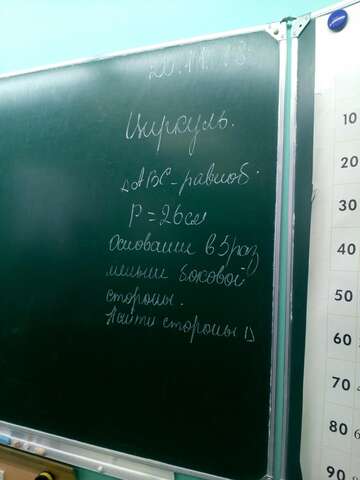 20.11.18
Циркуль.
△ABC-равноб.
P=26см
Основание в 5 раз
меньше боковой
стороны.
Найти стороны △
10
20
30
40
50
60
70
80
90